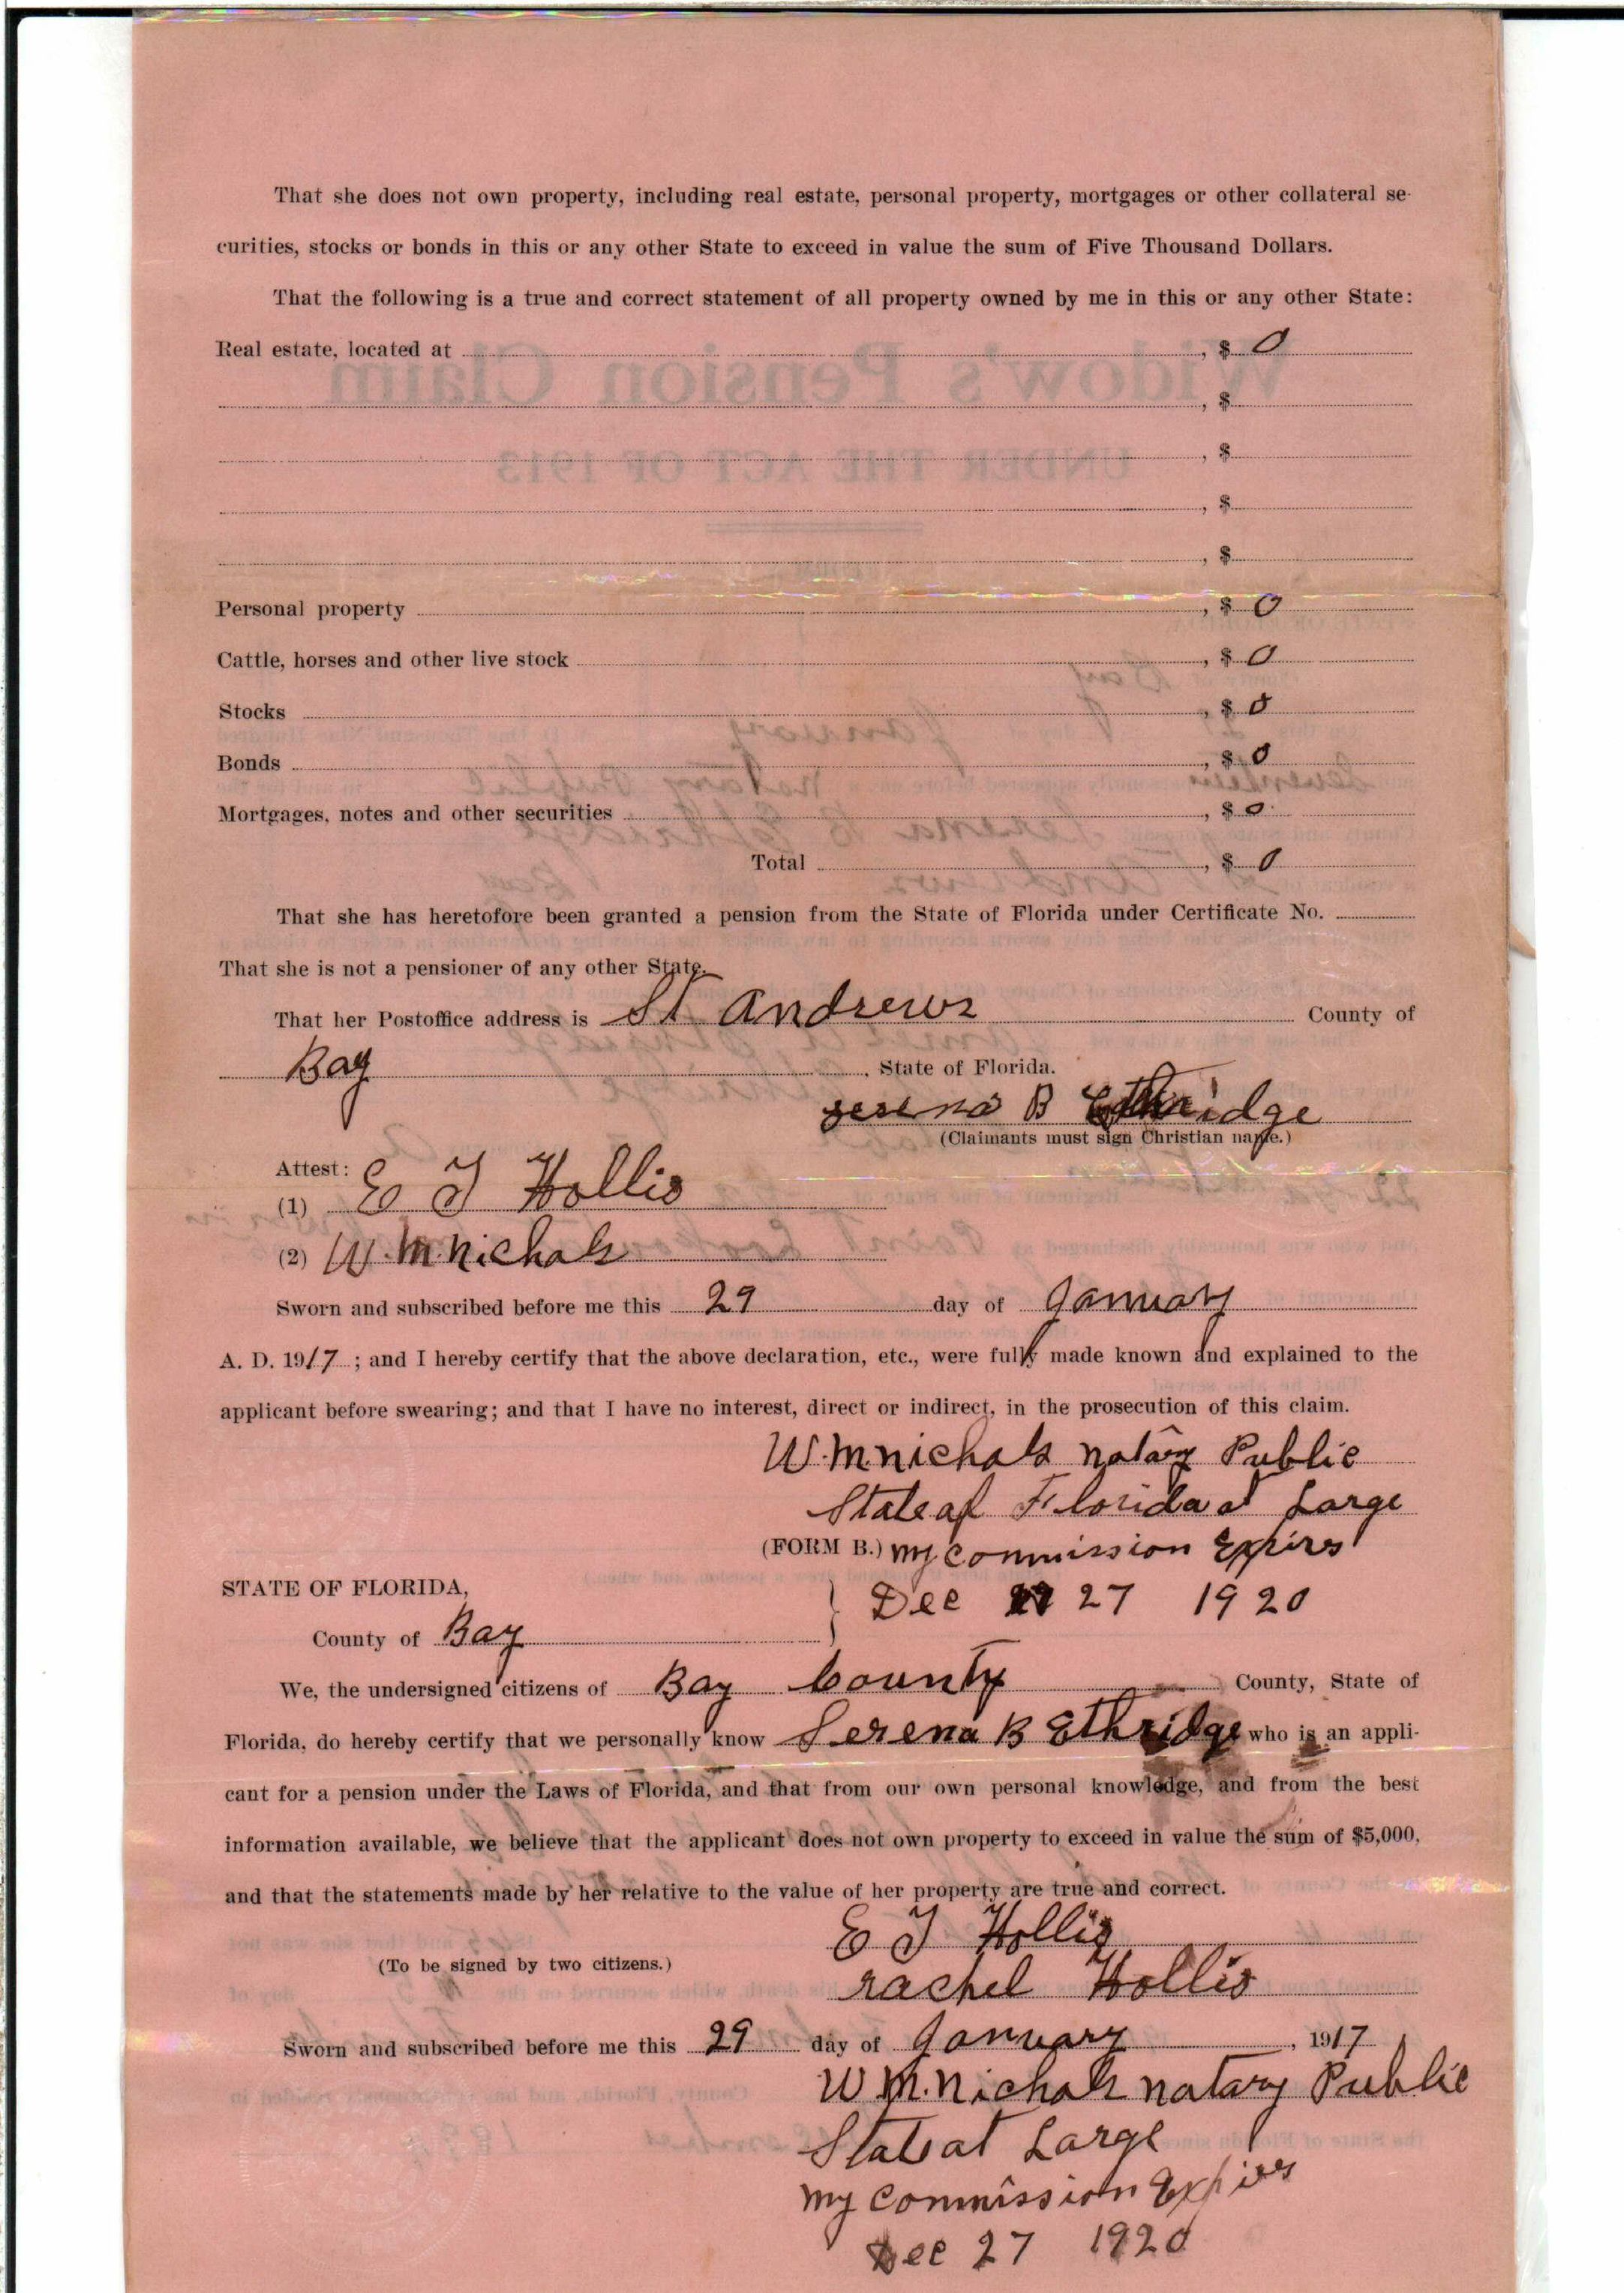 That she does not own property, including real estate, personal property, mortgages or other collateral se-
curities, stocks or bonds in this or any other State to exceed in value the sum of Five Thousand Dollars.
That the following is a true and correct statement of all property owned by me in this or any other State:
Real estate, located at , $ 0
, $
, $
, $
, $
Personal property , $ 0
Cattle, horses and other live stock , $ 0
Stocks , $ 0
Bonds , $ 0
Mortgages, notes and other securities , $ 0
Total , $ 0
That she has heretofore been granted a pension from the State of Florida under Certificate No.
That she is not a pensioner of any other State.
That her Postoffice address is St Andrews County of
Bay , State of Florida.
serena B Ethridge
(Claimants must sign Christian name.)
Attest:
(1) E J Hollis
(2) W. M. Nichols
Sworn and subscribed before me this 29 day of January
A. D. 1917 ; and I hereby certify that the above declaration, etc., were fully made known and explained to the
applicant before swearing; and that I have no interest, direct or indirect, in the prosecution of this claim.
W. M. Nichols Notary Public
State of Florida at Large
(FORM B.) My Commission Expires
STATE OF FLORIDA, } Dec 27 1920
County of Bay
We, the undersigned citizens of Bay County County, State of
Florida, do hereby certify that we personally know Serena B Ethridge who is an appli-
cant for a pension under the Laws of Florida, and that from our own personal knowledge, and from the best
information available, we believe that the applicant does not own property to exceed in value the sum of $5,000,
and that the statements made by her relative to the value of her property are true and correct.
E J Hollis
(To be signed by two citizens.)
rachel Hollis
Sworn and subscribed before me this 29 day of January , 1917
W. M. Nichols Notary Public
State at Large
My Commission Expires
Dec 27 1920